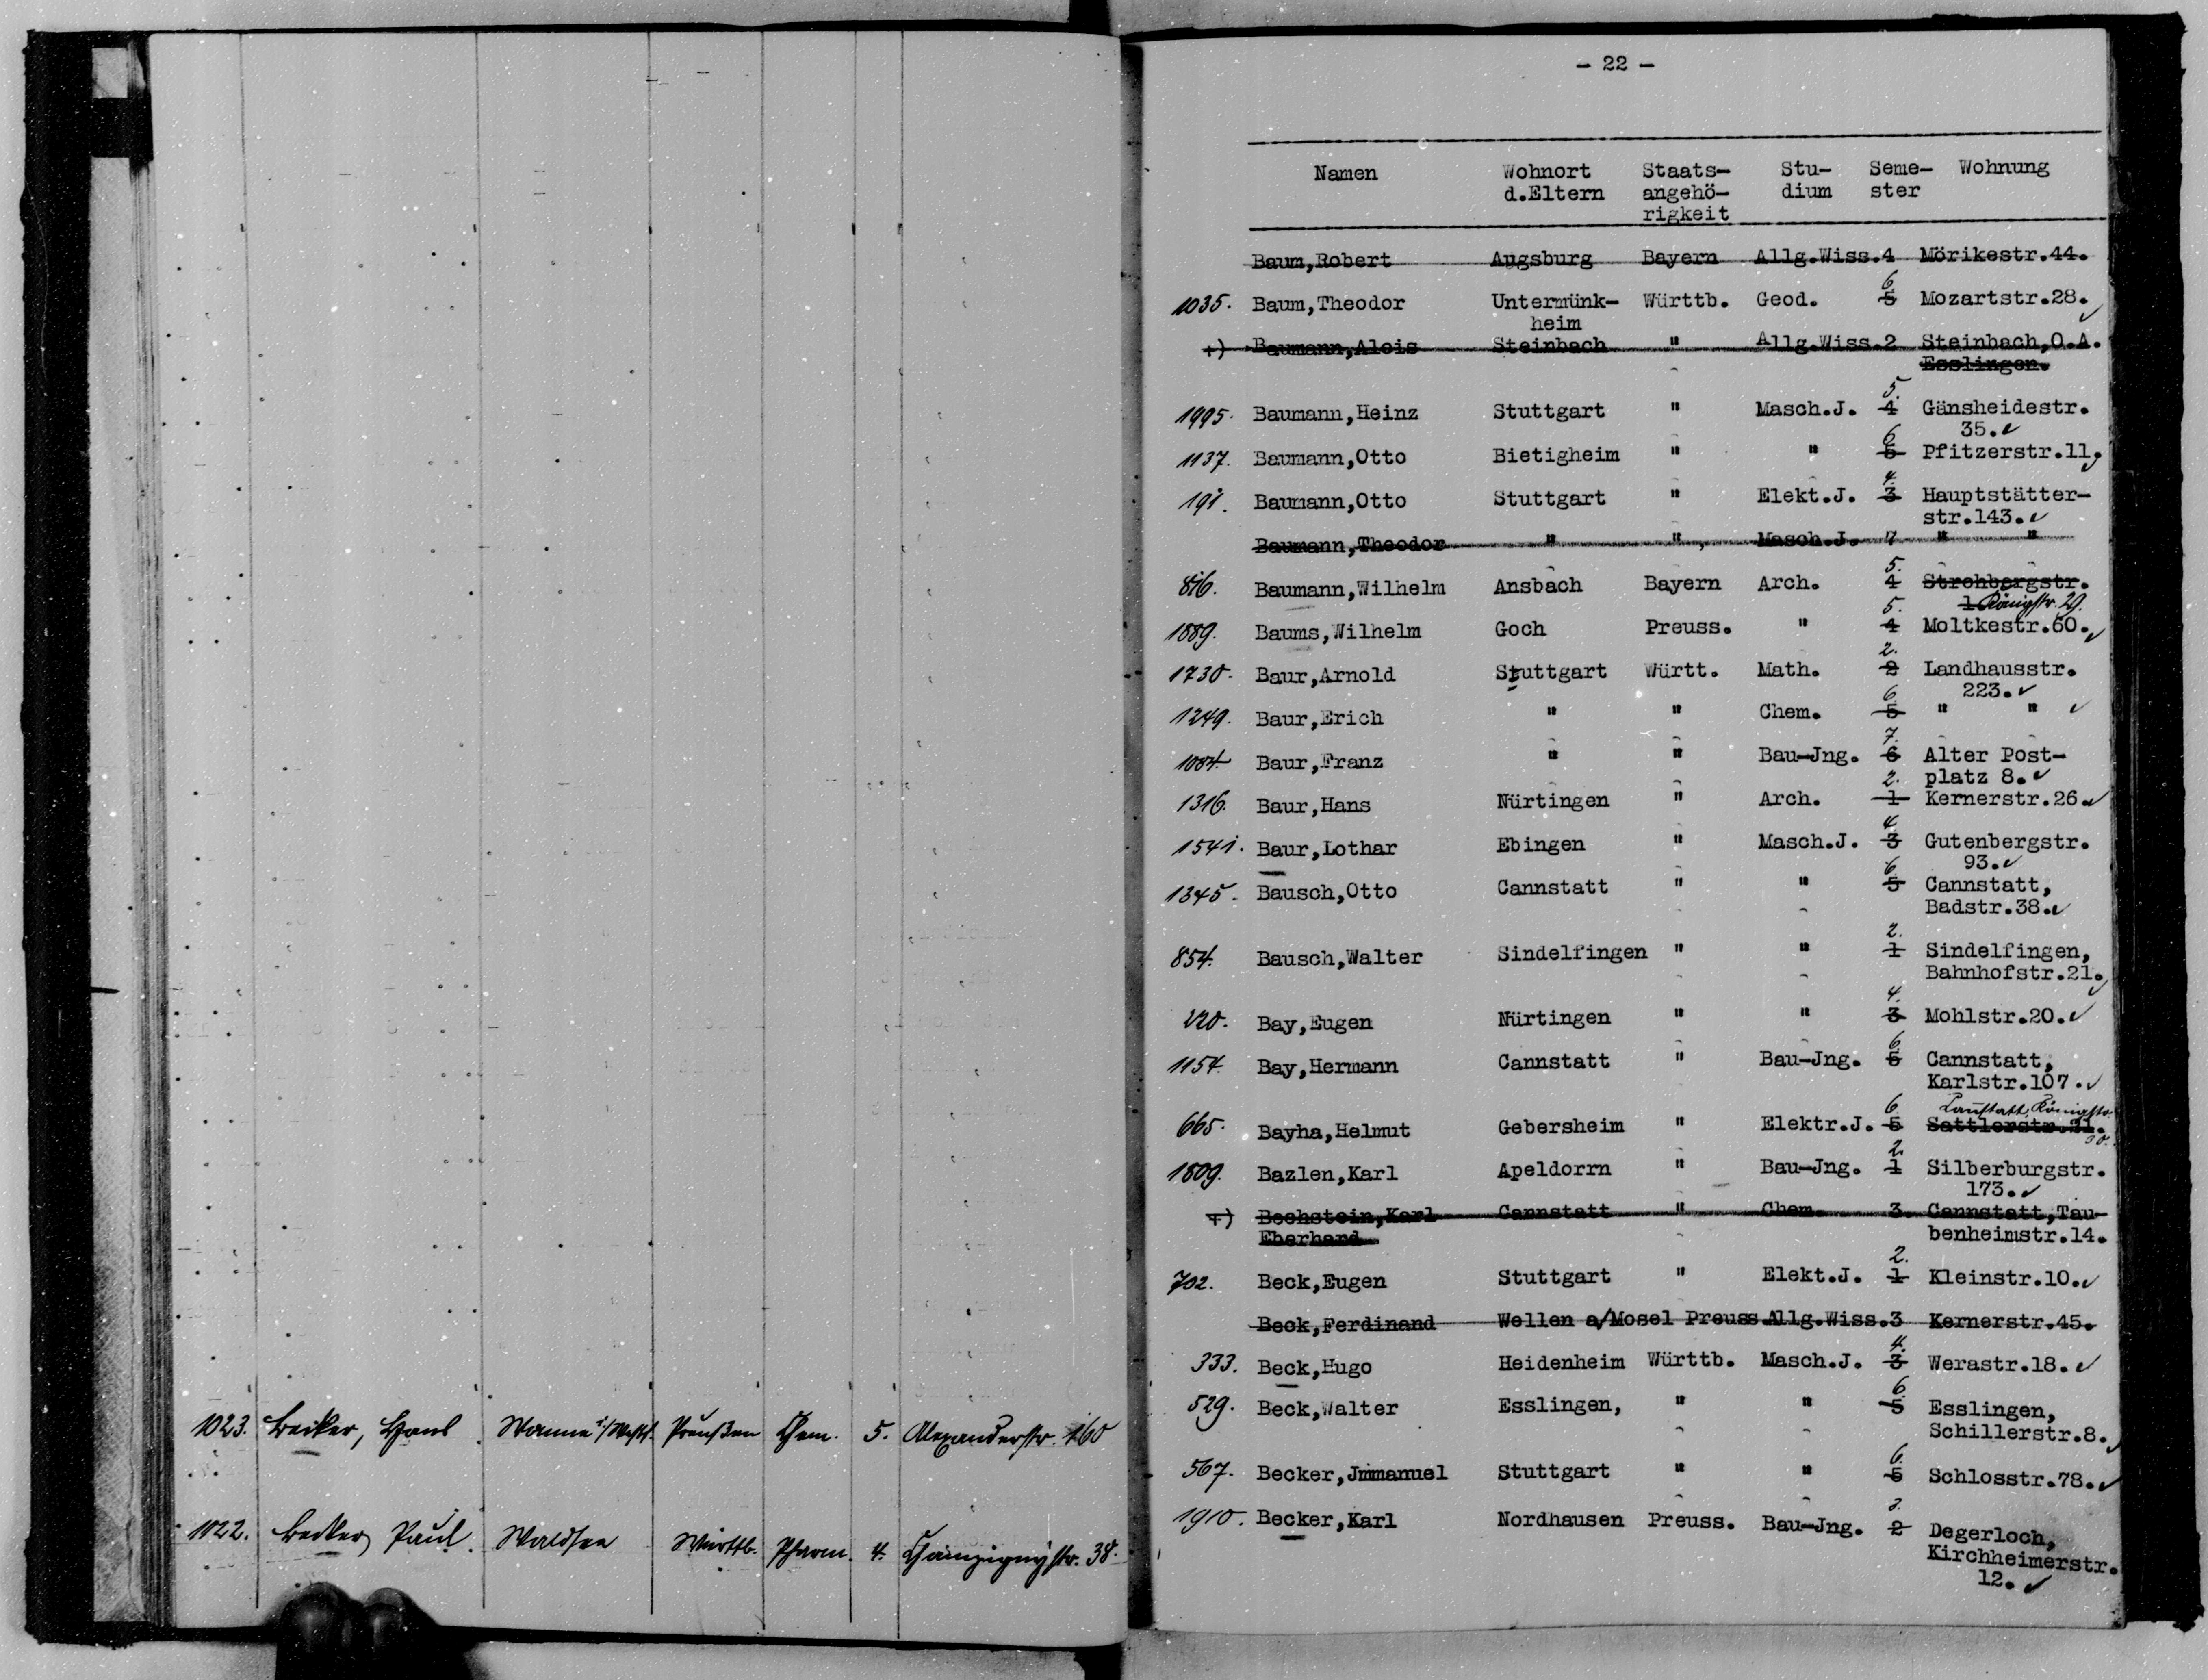 1023. Becker, Hans Wanne i/Westf. Preußen Chem. 5. Alexanderstr. 160
1022. Becker, Paul. Waldsee Württb. Pharm. 4. Champignystr. 38.
- 22 -
Namen Wohnort Staats- Stu- Seme- Wohnung
d.Eltern angehö- dium ster
rigkeit
Baum,Robert Augsburg Bayern Allg.Wiss.4 Mörikestr.44.
6
1035. Baum,Theodor Untermünk- Württb. Geod. 5 Mozartstr.28. ✓
heim
+) Baumann,Alois Steinbach " Allg.Wiss.2 Steinbach,O.A.
Esslingen.
5.
1995. Baumann,Heinz Stuttgart " Masch.J. 4 Gänsheidestr.
35. ✓
6
1137. Baumann,Otto Bietigheim " " 5 Pfitzerstr.11.
4.
191. Baumann,Otto Stuttgart " Elekt.J. 3 Hauptstätter-
str.143. ✓
Baumann,Theodor " " Masch.J. 7 " "
5.
816. Baumann,Wilhelm Ansbach Bayern Arch. 4 Strohbergstr.
1 Königstr. 29.
5.
1889. Baums,Wilhelm Goch Preuss. " 4 Moltkestr.60. ✓
2.
1730. Baur,Arnold Stuttgart Württ. Math. 2 Landhausstr.
223. ✓
6
1249. Baur,Erich " " Chem. 5 " " ✓
7.
1084. Baur,Franz " " Bau-Jng. 6 Alter Post-
platz 8. ✓
2.
1316. Baur,Hans Nürtingen " Arch. 1 Kernerstr.26. ✓
4.
1541. Baur,Lothar Ebingen " Masch.J. 3 Gutenbergstr.
93. ✓
6
1345. Bausch,Otto Cannstatt " " 5 Cannstatt,
Badstr.38. ✓
2.
854. Bausch,Walter Sindelfingen " " 1 Sindelfingen,
Bahnhofstr.21. ✓
4.
220. Bay,Eugen Nürtingen " " 3 Mohlstr.20. ✓
6
1154. Bay,Hermann Cannstatt " Bau-Jng. 5 Cannstatt,
Karlstr.107. ✓
6. Cannstatt, Königstr.
665. Bayha,Helmut Gebersheim " Elektr.J. 5 Sattlerstr.21.
2.
1809. Bazlen,Karl Apeldorrn " Bau-Jng. 1 Silberburgstr.
173. ✓
+) Bechstein,Karl Cannstatt " Chem. 3 Cannstatt,Tau-
Eberhard benheimstr.14.
2.
702. Beck,Eugen Stuttgart " Elekt.J. 1 Kleinstr.10. ✓
Beck,Ferdinand Wellen a/Mosel Preuss.Allg.Wiss.3 Kernerstr.45.
4.
333. Beck,Hugo Heidenheim Württb. Masch.J. 3 Werastr.18. ✓
6.
529. Beck,Walter Esslingen, " " 5 Esslingen,
Schillerstr.8. ✓
6.
567. Becker,Jmmanuel Stuttgart " " 5 Schlosstr.78. ✓
3.
1910. Becker,Karl Nordhausen Preuss. Bau-Jng. 2 Degerloch,
Kirchheimerstr.
12. ✓